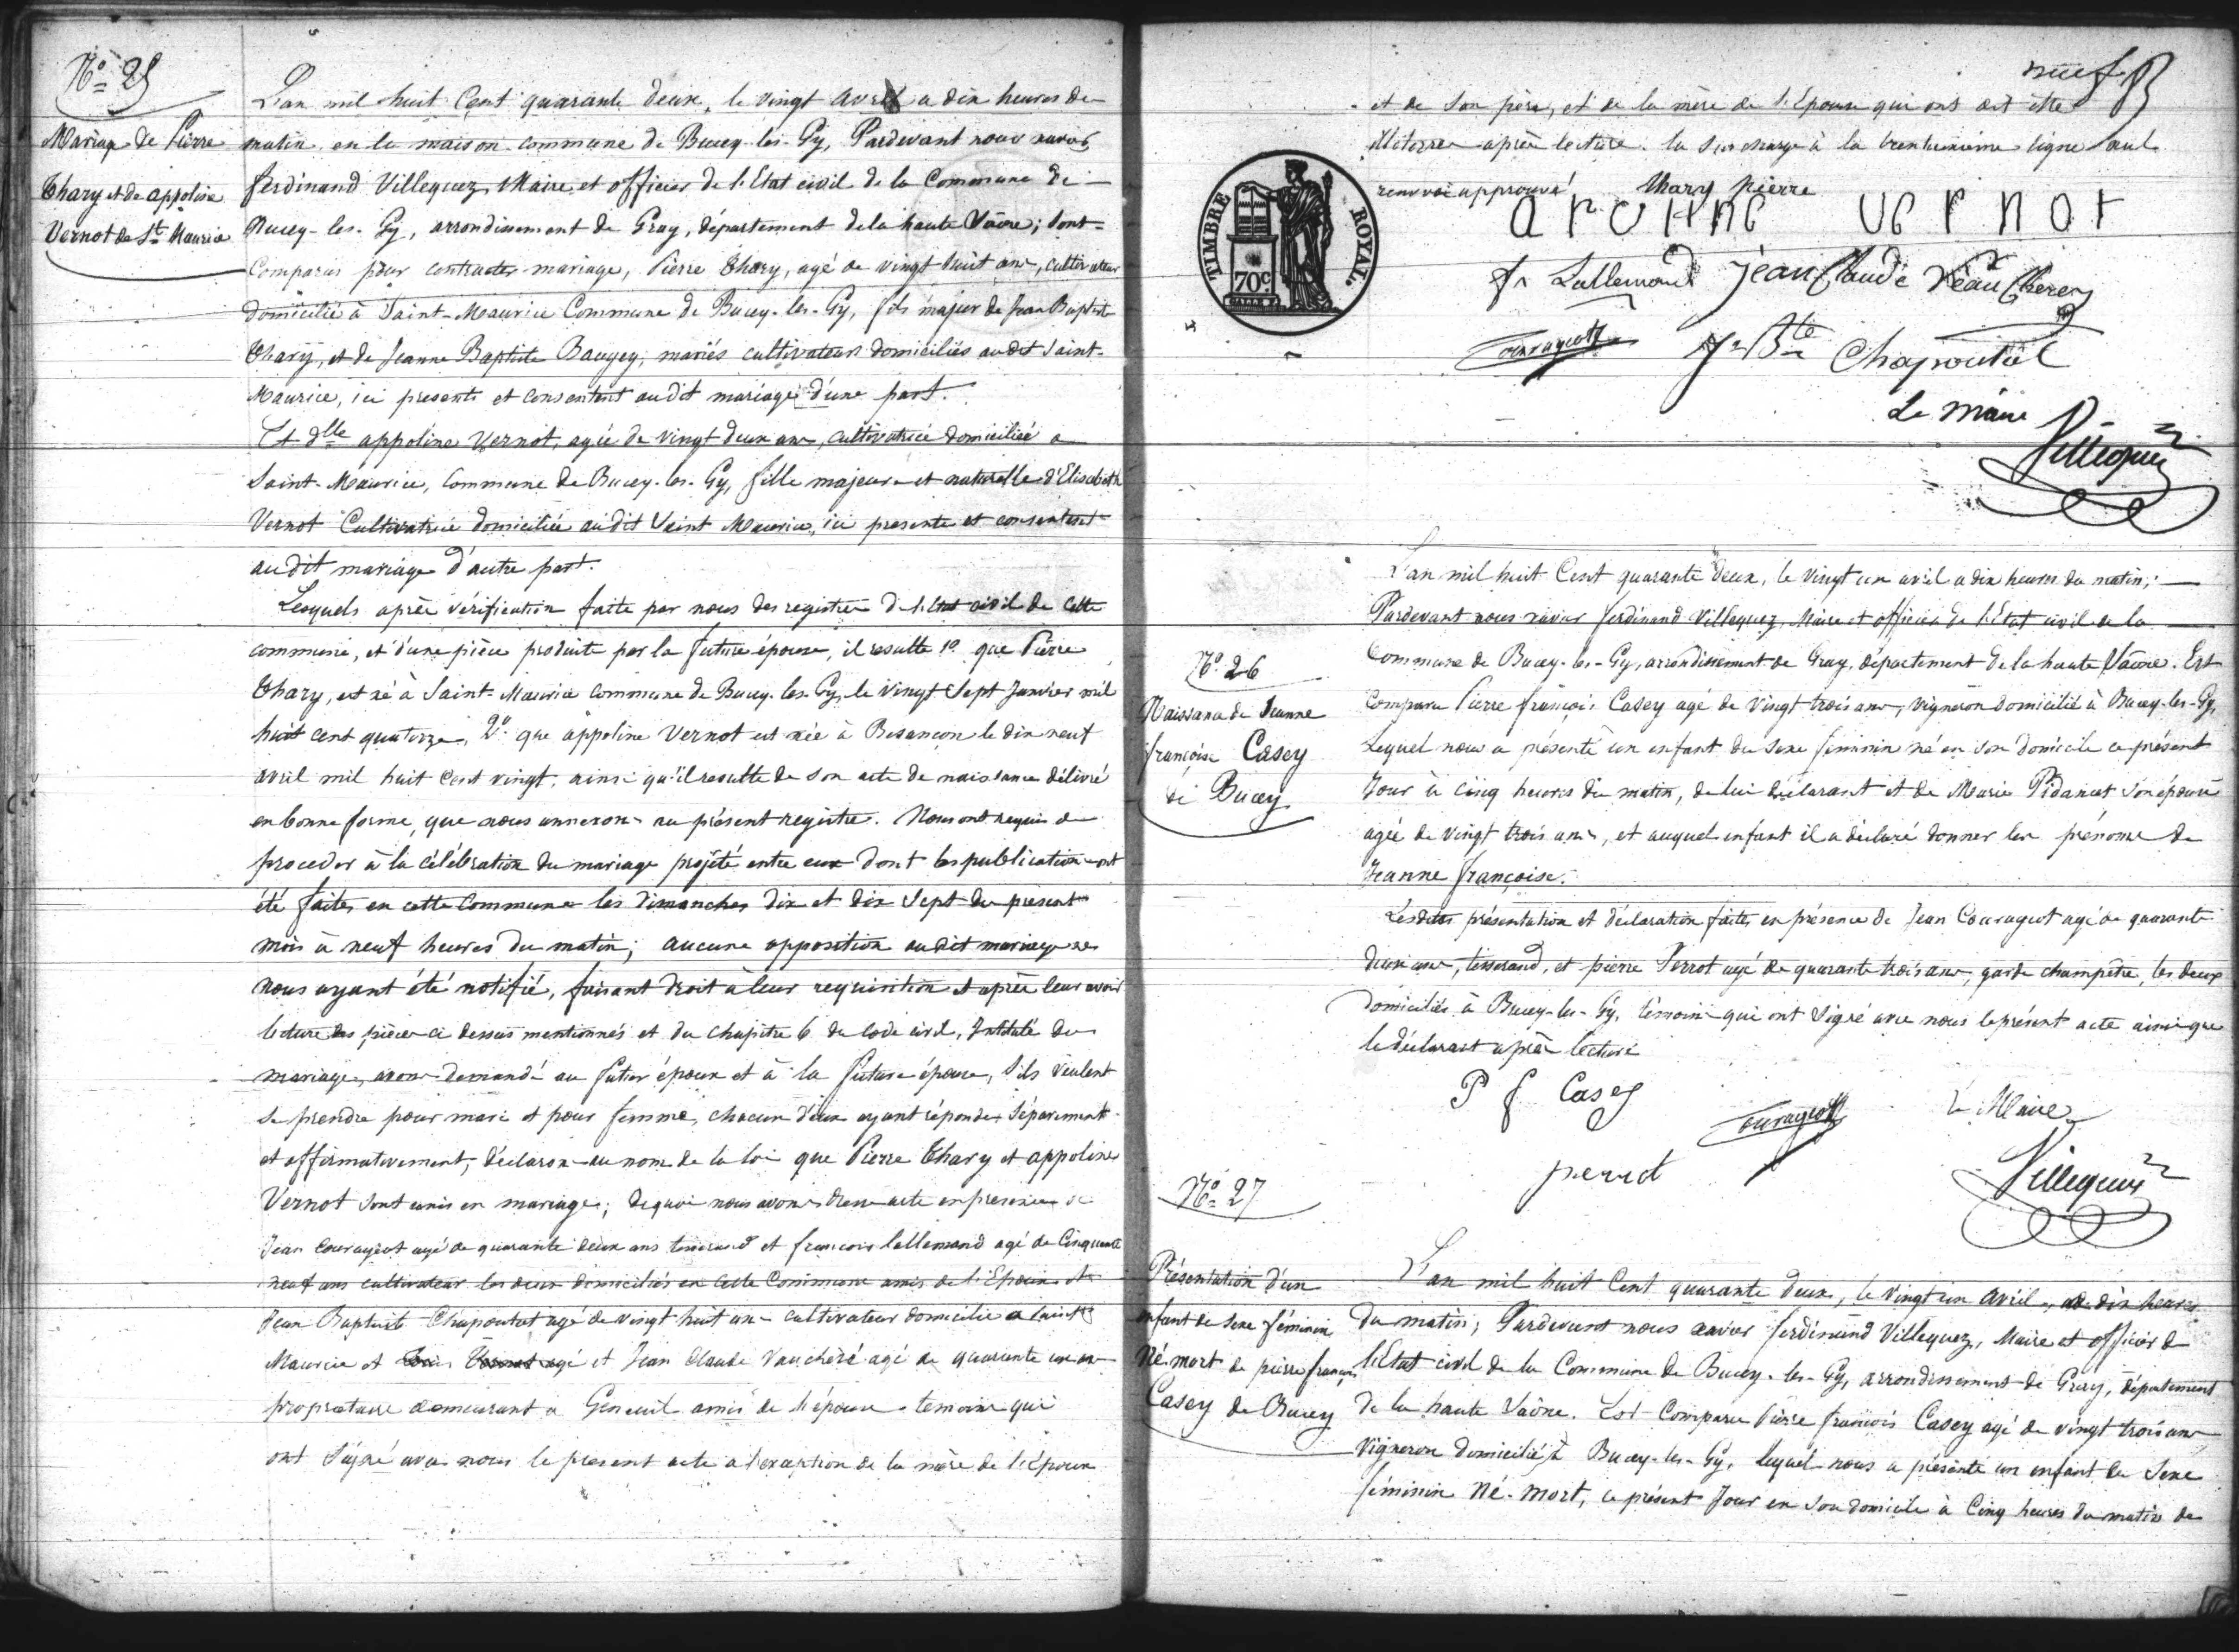 No 25
Mariage de Pierre
Thary et de appoline
Vernot de St Maurice
L'an mil huit Cent quarante deux, le vingt avril a dix heures du
matin, en la maison commune de Bucey-les-Gy, Pardevant nous xavier
ferdinand Villequez, Maire et officier de l'Etat civil de la Commune de
Bucey-les-Gy, arrondissement de Gray, département de la haute Saône; sont
Comparus pour contracter mariage, Pierre Thary, agé de vingt huit ans, cultivateur
domicilié à Saint-Maurice Commune de Bucey-les-Gy, fils majeur de Jean Baptiste
Thary, et de Jeanne Baptiste Baugey, mariés cultivateurs domiciliés audit Saint-
Maurice, ici presents et consentent audit mariage d'une part.
Et dlle appoline Vernot, agée de vingt deux ans, cultivatrice domiciliée a
Saint-Maurice, Commune de Bucey-les-Gy, fille majeure et naturelle d'Elisabeth
Vernot Cultivatrice domiciliée audit Saint Maurice, ici presente et consentent
audit mariage d'autre part.
Lesquels après vérification faite par nous des registres de l'Etat civil de cette
commune, et d'une pièce produite par la future épouse, il resulte 1o que Pierre
Thary, est né à Saint-Maurice commune de Bucey-les-Gy, le vingt Sept Janvier mil
huit cent quatorze, 2o que appoline Vernot est née à Besançon le dix neuf
avril mil huit cent vingt, ainsi qu'il resulte de son acte de naissance délivré
en bonne forme, que nous annexons au présent registre. Nous ont requis de
proceder à la célébration du mariage projeté entre eux dont les publications ont
été faites en cette Commune les dimanches dix et dix Sept du present
mois à neuf heures du matin; aucune opposition audit mariage ne
nous ayant été notifié, faisant droit à leur requisition et après leur avoir
lecture des pièces ci dessus mentionnés et du chapitre 6 du code civil, Intitulé du
mariage, avons demandé au futur époux et à la future épouse, s'ils veulent
se prendre pour mari et pour femme, chacun d'eux ayant répondu Séparement
et affirmativement, déclarons au nom de la loi que Pierre Thary et appoline
Vernot sont unis en mariage; de quoi nous avons dressé acte en presence de
Jean Courageot agé de quarante deux ans tisserand et francois lallemand agé de Cinquante
neuf ans cultivateur les deux domiciliés en cette Commune amis de l'Epoux et
Jean Baptiste Chapoutot agé de vingt huit ans cultivateur domicilie a saint
Maurice et agé et Jean Claude Vaucheré agé de quarante un an
proprietaire demeurant a Geneuil amis de l'épouse temoins qui
ont Signé avec nous le present acte a l'exception de la mère de l'Epoux
neuf
et de son père, et de la mère de l'Epouse qui ont dit être
illéterrés après lecture. la surcharge à la trentunieme ligne Seul
renvoi approuvé
TIMBRE ROYAL.
70c.
thary pierre
vernot
fr Lallemand Jean Claude Vaucherey
Courageott
Jn Bte Chapoutot
Le Maire
Villequez
No 26
Naissance de Jeanne
françoise Casey
de Bucey
L'an mil huit Cent quarante deux, le vingt un avril a dix heures du matin;
Pardevant nous xavier ferdinand Villequez, Maire et officier de l'Etat civil de la
Commune de Bucey-les-Gy, arrondissement de Gray, département de la haute Saône. Est
Comparu Pierre françois Casey agé de vingt trois ans, vigneron domicilié à Bucey-les-Gy,
Lequel nous a présenté un enfant du sexe feminin né en son domicile ce présent
Jour à cinq heures du matin, de lui déclarant et de Marie Pidancet son épouse
agée de vingt trois ans, et auquel enfant il a déclaré donner les prénoms de
Jeanne françoise.
Lesdites présentation et déclaration faites en présence de Jean Courageot agé de quarante
deux ans, tisserand, et pierre Perrot agé de quarante trois ans, garde champêtre, les deux
domiciliés à Bucey-les-Gy, témoins qui ont signé avec nous le présent acte ainsi que
le déclarant après lecture
P f Casey
Couragott
Le Maire
perrot
Villequez
No 27
Présentation d'un
enfant de sexe féminin
Né-mort de pierre françois
Casey de Bucey
L'an mil huit Cent quarante deux, le vingt un avril, a dix heures
du matin; Pardevant nous xavier ferdinand Villequez, Maire et officier de
l'Etat civil de la Commune de Bucey-les-Gy, arrondissement de Gray, département
de la haute Saône. Est Comparu Pierre françois Casey agé de vingt trois ans
Vigneron domicilié à Bucey-les-Gy, lequel nous a présenté un enfant du Sexe
féminin Né-mort, ce présent Jour en son domicile à Cinq heures du matin de